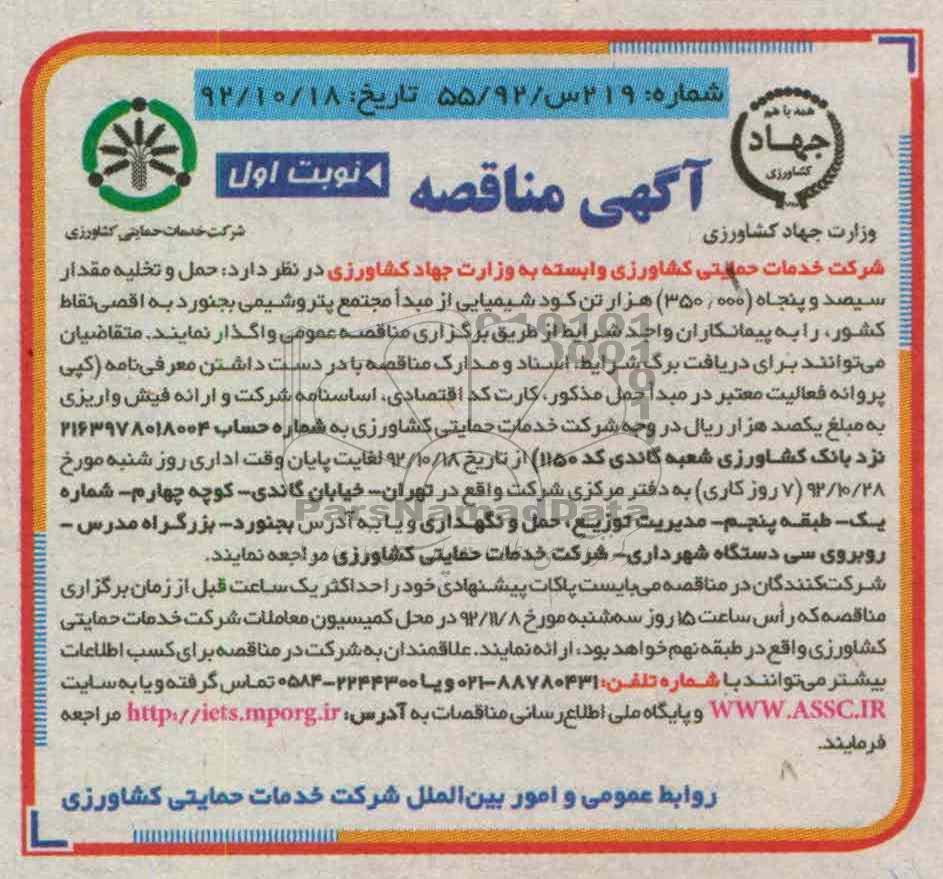 شماره: ۲۱۹س/۵۵/۹۲ تاریخ: ۹۲/۱۰/۱۸
همه با هم
جهاد
کشاورزی
وزارت جهاد کشاورزی
آگهی مناقصه
نوبت اول
شرکت خدمات حمایتی کشاورزی
شرکت خدمات حمایتی کشاورزی وابسته به وزارت جهاد کشاورزی در نظر دارد: حمل و تخلیه مقدار
سیصد و پنجاه (۳۵۰٫۰۰۰) هزار تن کود شیمیایی از مبدأ مجتمع پتروشیمی بجنورد به اقصی نقاط
کشور، را به پیمانکاران واجد شرایط از طریق برگزاری مناقصه عمومی واگذار نمایند. متقاضیان
می‌توانند برای دریافت برگ شرایط، اسناد و مدارک مناقصه با در دست داشتن معرفی‌نامه (کپی
پروانه فعالیت معتبر در مبدأ حمل مذکور، کارت کد اقتصادی، اساسنامه شرکت و ارائه فیش واریزی
به مبلغ یکصد هزار ریال در وجه شرکت خدمات حمایتی کشاورزی به شماره حساب ۲۱۶۳۹۷۸۰۱۸۰۰۴
نزد بانک کشاورزی شعبه گاندی کد ۱۱۵۰) از تاریخ ۹۲/۱۰/۱۸ لغایت پایان وقت اداری روز شنبه مورخ
۹۲/۱۰/۲۸ (۷ روز کاری) به دفتر مرکزی شرکت واقع در تهران- خیابان گاندی- کوچه چهارم- شماره
یک- طبقه پنجم- مدیریت توزیع، حمل و نگهداری و یا به آدرس بجنورد- بزرگراه مدرس -
روبروی سی دستگاه شهرداری- شرکت خدمات حمایتی کشاورزی مراجعه نمایند.
شرکت‌کنندگان در مناقصه می‌بایست پاکات پیشنهادی خود را حداکثر یک ساعت قبل از زمان برگزاری
مناقصه که رأس ساعت ۱۵ روز سه‌شنبه مورخ ۹۲/۱۱/۸ در محل کمیسیون معاملات شرکت خدمات حمایتی
کشاورزی واقع در طبقه نهم خواهد بود، ارائه نمایند. علاقمندان به شرکت در مناقصه برای کسب اطلاعات
بیشتر می‌توانند با شماره تلفن: ۸۸۷۸۰۴۳۱-۰۲۱ و یا ۲۲۴۴۳۰۰-۰۵۸۴ تماس گرفته و یا به سایت
WWW.ASSC.IR و پایگاه ملی اطلاع‌رسانی مناقصات به آدرس: http://iets.mporg.ir مراجعه
فرمایند.
روابط عمومی و امور بین‌الملل شرکت خدمات حمایتی کشاورزی
ParsNamadData